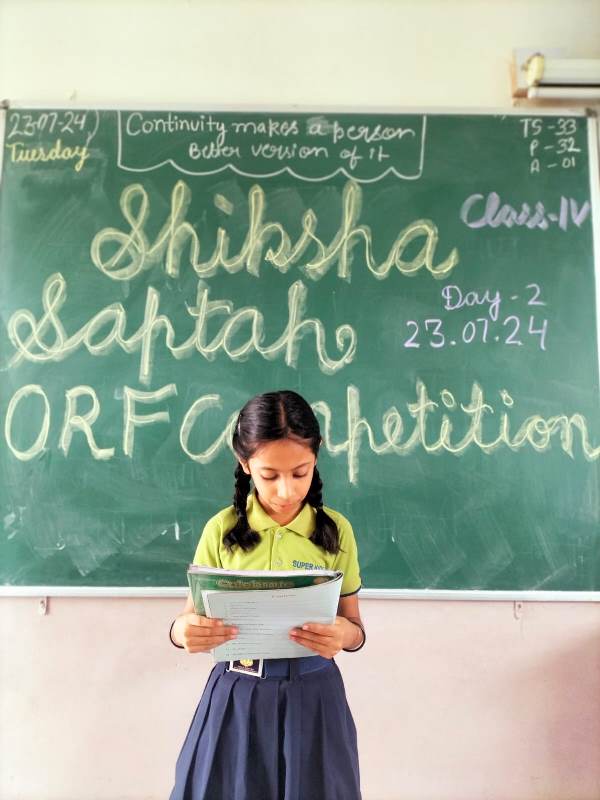 23-07-24
Tuesday
Continuity makes a person
Beber version of it
TS - 33
P - 32
A - 01
Class-IV
Shiksha
Saptah
Day - 2
23.07.24
ORF Competition
SUPER